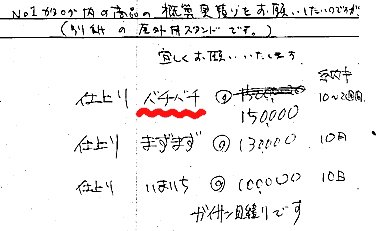 No1から9が内の商品の概算見積りをお願いしたいのですが
(別紙の屋外用スタンドです。)
宜しくお願いいたします
仕上り バチーバチ @ 150,000
150,000
仕上り まずまず @ 130,000 10日
仕上り いまいち @ 100,000 10日
ガイサン見積りです